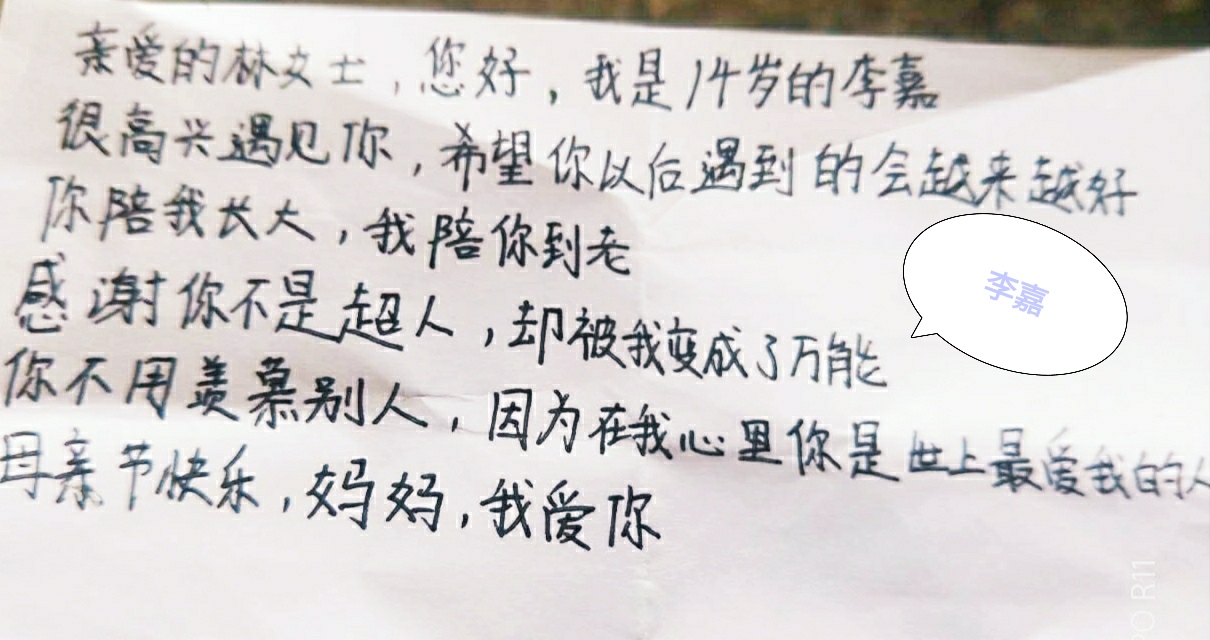 亲爱的林女士，您好，我是14岁的李嘉
很高兴遇见你，希望你以后遇到的会越来越好
你陪我长大，我陪你到老
李嘉
感谢你不是超人，却被我变成了万能
你不用羡慕别人，因为在我心里你是世上最爱我的人
母亲节快乐，妈妈，我爱你
O R11